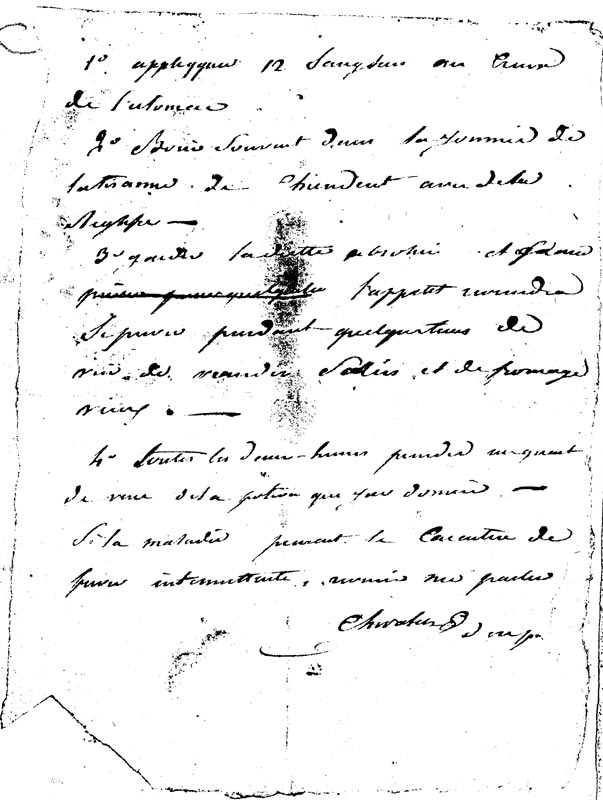 1° appliquer 12 Sangsues au Creux
de l'estomac
2° Boire Souvent dans la Journée de
la tisanne de Chiendent avec de la
Reglisse —
3° garder la diette absolue et
l'appetit reviendra
Se priver pendant quelque tems de
vin de viandes Salées et de fromage
vieux. —
4° toutes les deux heures prendre un quart
de verre de la potion que j'ai donnée —
Si la maladie prenait le Caractère de
fievre intermittente, revenir me parler